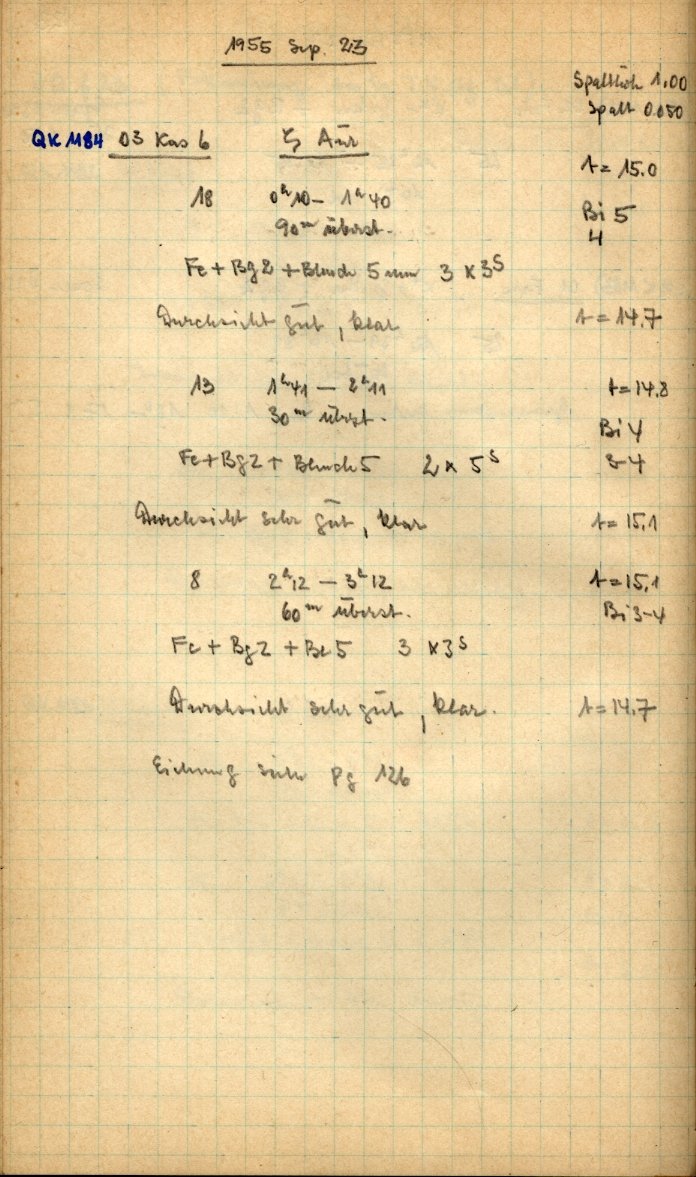 1955 Sep. 23
Spalthöh 1.00
Spalt 0.050
QK 1184 03 Kas 6 ζ Aur
t = 15.0
18 0ʰ10 – 1ʰ40
90ᵐ überst.
Bi 5
4
Fe + Bg2 + Blende 5 mm 3 x 3ˢ
Durchsicht gut, klar
t = 14.7
13 1ʰ41 – 2ʰ11 t = 14.8
30ᵐ überst.
Bi 4
Fe + Bg2 + Blende 5 2 x 5ˢ 3-4
Durchsicht sehr gut, klar t = 15,1
8 2ʰ12 – 3ʰ12 t = 15,1
60ᵐ überst. Bi 3-4
Fe + Bg2 + Bl 5 3 x 3ˢ
Durchsicht sehr gut, klar. t = 14.7
Eichung siehe pg 126